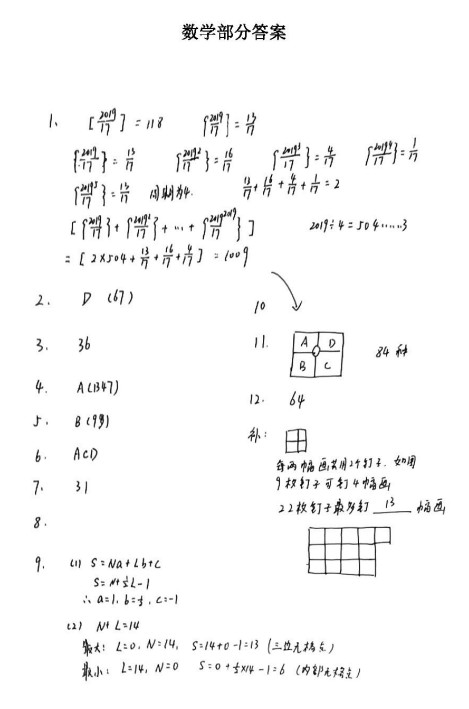 数学部分答案
1、 [2019/17] = 118 {2019/17} = 13/17
{2019/17} = 13/17 {2019²/17} = 16/17 {2019³/17} = 4/17 {2019⁴/17} = 1/17
{2019⁵/17} = 13/17 周期为4. 13/17 + 16/17 + 4/17 + 1/17 = 2
[{2019/17} + {2019²/17} + ... + {2019²⁰¹⁹/17}] 2019÷4=504......3
= [2×504 + 13/17 + 16/17 + 4/17] = 1009
2. D (67)
3. 36
4. A(1347)
5. B(93)
6. ACD
7. 31
8.
9. (1) S=Na+Lb+c
S=N+½L-1
∴ a=1, b=½, c=-1
(2) N+L=14
最大: L=0, N=14, S=14+0-1=13
最小: L=14, N=0 S=0+½×14-1=6 (内部无格点)
10
11. A D 84种
B C
12. 64
补:
每两幅画共用2个钉子. 如图
9枚钉子可钉4幅画
22枚钉子最多钉 13 幅画